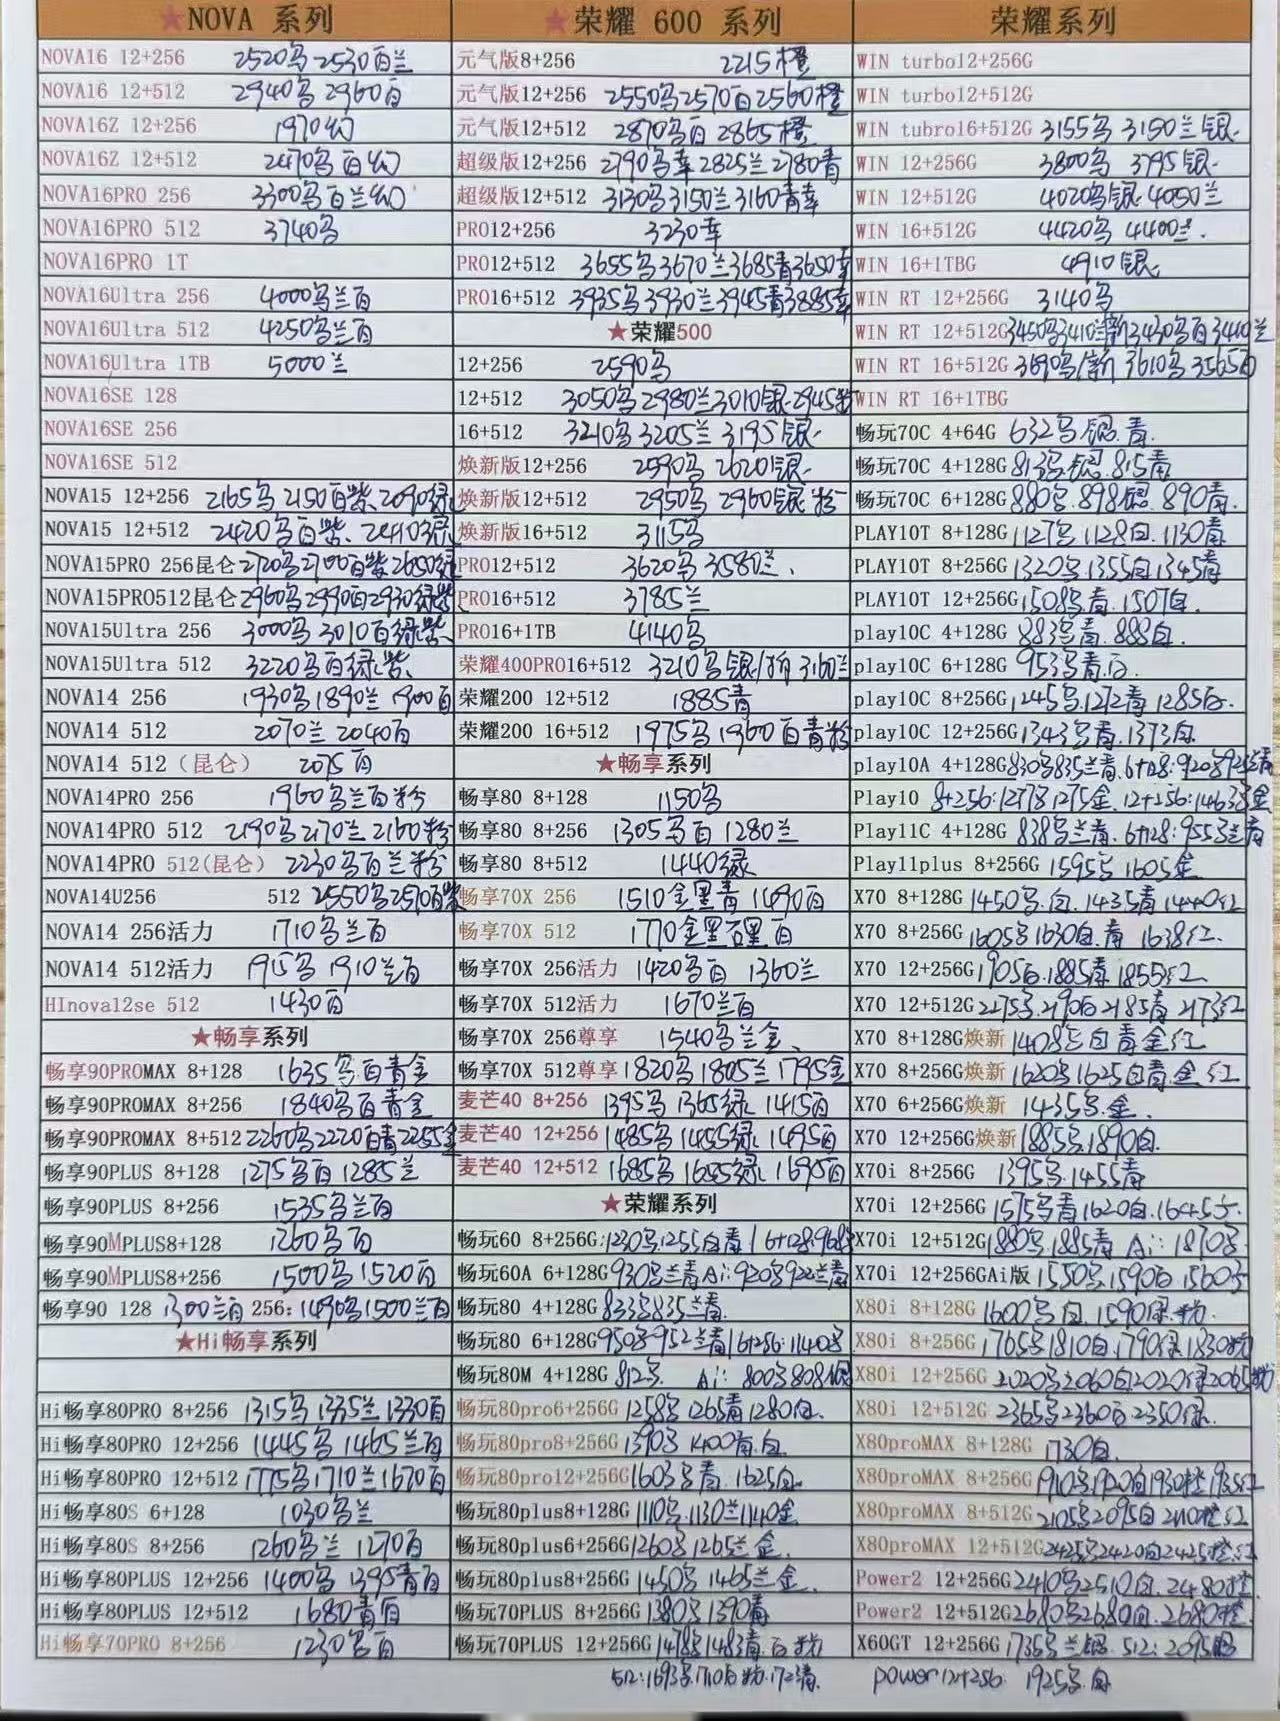 ★NOVA 系列
NOVA16 12+256 2520乌2530百兰
NOVA16 12+512 2940乌 2960百
NOVA16Z 12+256 1970幻
NOVA16Z 12+512 2470乌百幻
NOVA16PRO 256 3300乌百兰幻
NOVA16PRO 512 3740乌
NOVA16PRO 1T
NOVA16Ultra 256 4000乌兰百
NOVA16Ultra 512 4250乌兰百
NOVA16Ultra 1TB 5000兰
NOVA16SE 128
NOVA16SE 256
NOVA16SE 512
NOVA15 12+256 2165乌2150百紫、2090绿
NOVA15 12+512 2420乌百紫、2410绿
NOVA15PRO 256昆仑2720乌2700百紫2650绿
NOVA15PRO512昆仑2960乌2990百2930绿紫
NOVA15Ultra 256 3000乌3010百绿紫
NOVA15Ultra 512 3220乌百绿紫
NOVA14 256 1930乌1890兰1900百
NOVA14 512 2070兰2040百
NOVA14 512（昆仑） 2075百
NOVA14PRO 256 1960乌兰百粉
NOVA14PRO 512 2190乌2170兰2160粉
NOVA14PRO 512(昆仑) 2230乌百兰粉
NOVA14U256 512 2550乌2510百紫
NOVA14 256活力 1710乌兰百
NOVA14 512活力 1915乌1910兰百
HInova12se 512 1430百
★畅享系列
畅享90PROMAX 8+128 1635乌百青金
畅享90PROMAX 8+256 1840乌百青金
畅享90PROMAX 8+512 2260乌2220百青2255金
畅享90PLUS 8+128 1275乌百1285兰
畅享90PLUS 8+256 1535乌兰百
畅享90MPLUS8+128 1260乌百
畅享90MPLUS8+256 1500乌1520百
畅享90 128 1300兰百 256:1490乌1500兰百
★Hi畅享系列
Hi畅享80PRO 8+256 1315乌1335兰1330百
Hi畅享80PRO 12+256 1445乌1465兰百
Hi畅享80PRO 12+512 1775乌1710兰1670百
Hi畅享80S 6+128 1030乌兰
Hi畅享80S 8+256 1260乌兰1270百
Hi畅享80PLUS 12+256 1400乌1395青百
Hi畅享80PLUS 12+512 1680青百
Hi畅享70PRO 8+256 1230乌百
★荣耀 600 系列
元气版8+256 2215橙
元气版12+256 2550乌2570百2560橙
元气版12+512 2870乌百2865橙
超级版12+256 2790乌幸2825兰2780青
超级版12+512 3130乌3150兰3160青幸
PRO12+256 3230幸
PRO12+512 3655乌3670兰3685青3650幸
PRO16+512 3935乌3930兰3945青3885幸
★荣耀500
12+256 2590乌
12+512 3050乌2980兰3010银2945粉
16+512 3210乌3205兰3195银
焕新版12+256 2590乌 2620银
焕新版12+512 2950乌 2960银粉
焕新版16+512 3115乌
PRO12+512 3620乌3580兰
PRO16+512 3785兰
PRO16+1TB 4140乌
荣耀400PRO16+512 3210乌银 3160兰
荣耀200 12+512 1885青
荣耀200 16+512 1975乌1960百青粉
★畅享系列
畅享80 8+128 1150乌
畅享80 8+256 1305乌百1280兰
畅享80 8+512 1440绿
畅享70X 256 1510金黑青1490百
畅享70X 512 1770金黑百
畅享70X 256活力 1420乌百 1360兰
畅享70X 512活力 1670兰百
畅享70X 256尊享 1540乌兰金
畅享70X 512尊享1820乌1805兰1795金
麦芒40 8+256 1395乌1365绿1415百
麦芒40 12+256 1485乌1455绿1495百
麦芒40 12+512 1685乌1655绿1695百
★荣耀系列
畅玩60 8+256G:1230乌1255白青 6+128:968乌
畅玩60A 6+128G930乌兰青Ai:920乌922兰青
畅玩80 4+128G833乌835兰青
畅玩80 6+128G950乌952兰青 6+256:1140乌
畅玩80M 4+128G 812乌 Ai:800乌808银
畅玩80pro6+256G1258乌1265青1280白
畅玩80pro8+256G1390乌1400青白
畅玩80pro12+256G1603乌青 1625白
畅玩80plus8+128G1110乌1130兰1140金
畅玩80plus6+256G1260乌1265兰金
畅玩80plus8+256G1450乌1465兰金
畅玩70PLUS 8+256G1380乌1390青
畅玩70PLUS 12+256G1478乌1483青白
512:1693乌1710白 1723青
荣耀系列
WIN turbo12+256G
WIN turbo12+512G
WIN tubro16+512G 3155乌3150兰银
WIN 12+256G 3800乌 3795银
WIN 12+512G 4020乌银4050兰
WIN 16+512G 4420乌4400兰
WIN 16+1TBG 4910银
WIN RT 12+256G 3140乌
WIN RT 12+512G3450乌3410兰新3430乌百3410兰
WIN RT 16+512G 3690乌新 3610乌3565百
WIN RT 16+1TBG
畅玩70C 4+64G 632乌银青
畅玩70C 4+128G 813乌银815青
畅玩70C 6+128G880乌898银890青
PLAY10T 8+128G1127乌1128白1130青
PLAY10T 8+256G1320乌1355白1345青
PLAY10T 12+256G1508乌青1507白
play10C 4+128G 883乌青888白
play10C 6+128G 953乌青白
play10C 8+256G1245乌1272青1285白
play10C 12+256G1343乌青1373白
play10A 4+128G830乌835兰青6+128:920乌925兰青
Play10 8+256:1217乌1275金12+256:1463乌金
Play11C 4+128G 838乌兰青6+128:955乌兰青
Play11plus 8+256G 1595乌1605金
X70 8+128G1450乌白1435青1440红
X70 8+256G1605乌1630白青1638红
X70 12+256G1905百1885青1855红
X70 12+512G2275乌2190百2185青2173红
X70 8+128G焕新1408乌白青金红
X70 8+256G焕新1620乌1625白青金红
X70 6+256G焕新1435乌金
X70 12+256G焕新1885乌1890白
X70i 8+256G 1395乌1455青
X70i 12+256G1575乌青1620白1645
X70i 12+512G1880乌1885青 Ai:1870乌
X70i 12+256GAi版1550乌1590百1560
X80i 8+128G1600乌白1590绿
X80i 8+256G1765乌1810白1790绿1830
X80i 12+256G 2020乌2060白2020绿2065
X80i 12+512G 2365乌2360百2350绿
X80proMAX 8+128G 1730白
X80proMAX 8+256G1910乌1920白1930橙1935红
X80proMAX 8+512G2105乌2095白2110橙红
X80proMAX 12+512G2425乌2420白2425橙红
Power2 12+256G2410乌2510白2480橙
Power2 12+512G2680乌2680白2680橙
X60GT 12+256G1735乌兰银512:2095
power12+256: 1925乌白